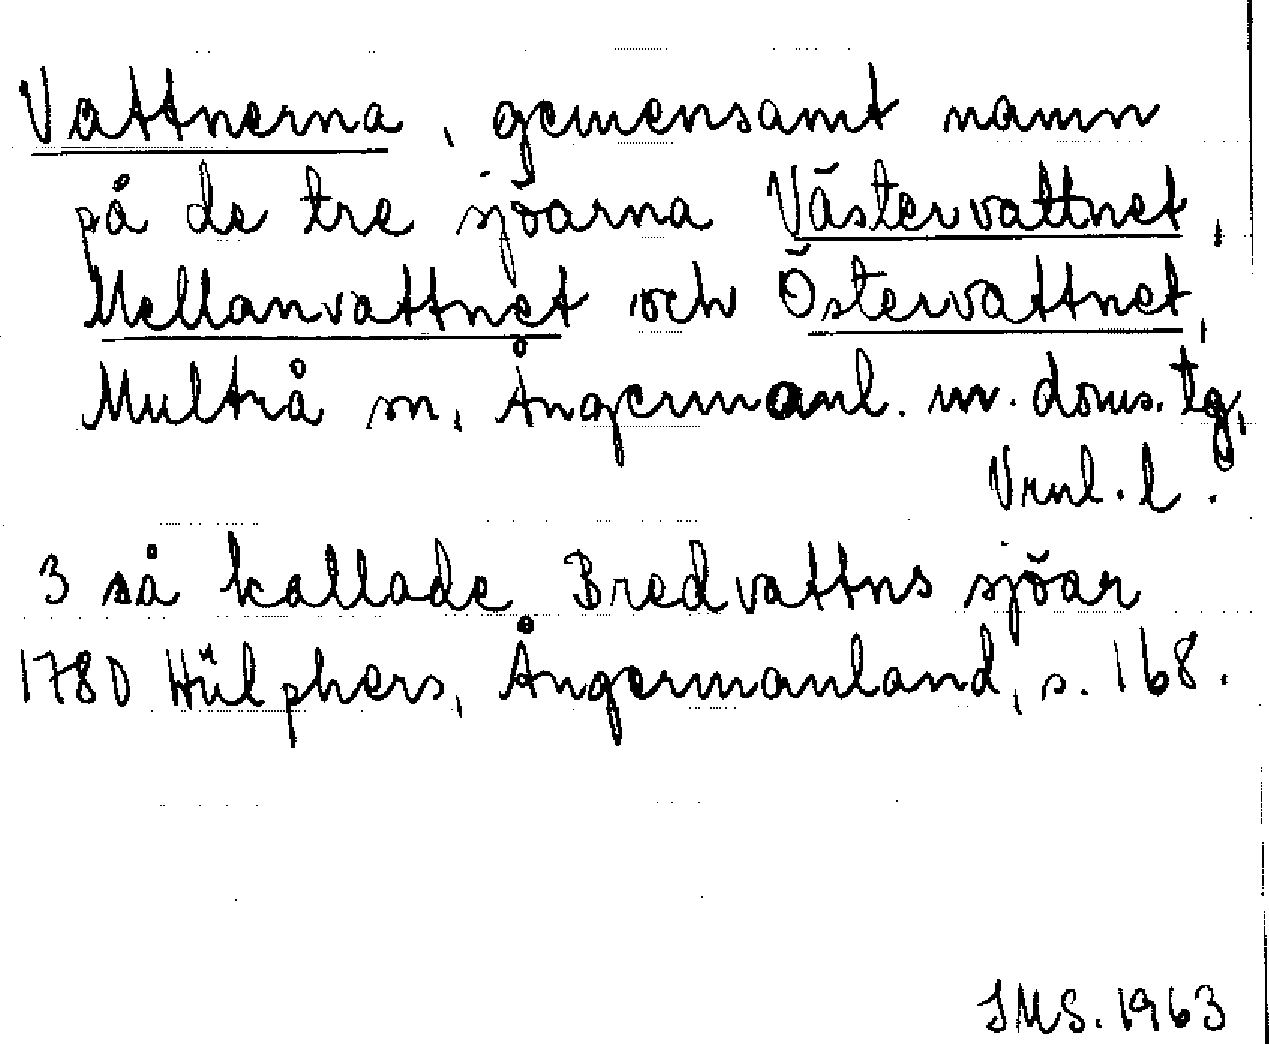 Vattnerna, gemensamt namn
på de tre sjöarna Västervattnet,
Mellanvattnet och Östervattnet,
Multrå sn, Ångermanl. m. doms. tg,
Vrnl. l.
3 så kallade Bredvattns sjöar
1780 Hülphers, Ångermanland, s. 168.
JMS. 1963